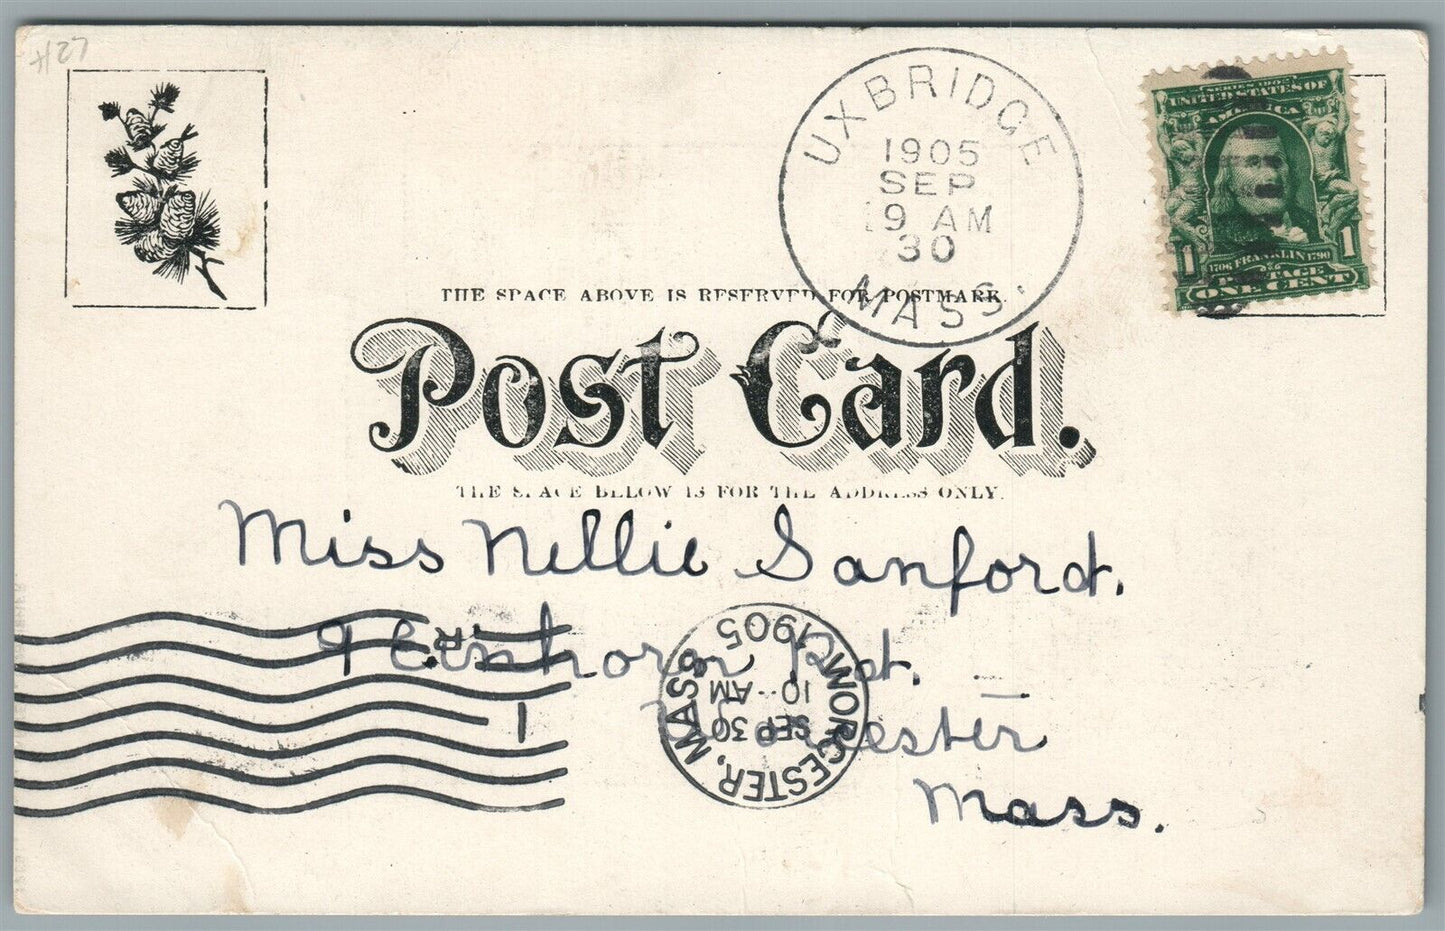 #27
UXBRIDGE
1905
SEP
9 AM
30
MASS.
SERIES 1902
UNITED STATES OF
AMERICA
1706 FRANKLIN 1790
1 1
POSTAGE
ONE CENT
THE SPACE ABOVE IS RESERVED FOR POSTMARK.
Post Card.
THE SPACE BELOW IS FOR THE ADDRESS ONLY.
Miss Nellie Sanford.
9 Einhorn Rd.
Worcester
Mass.
WORCESTER, MASS.
SEP 30
10-AM
1905
R.
1